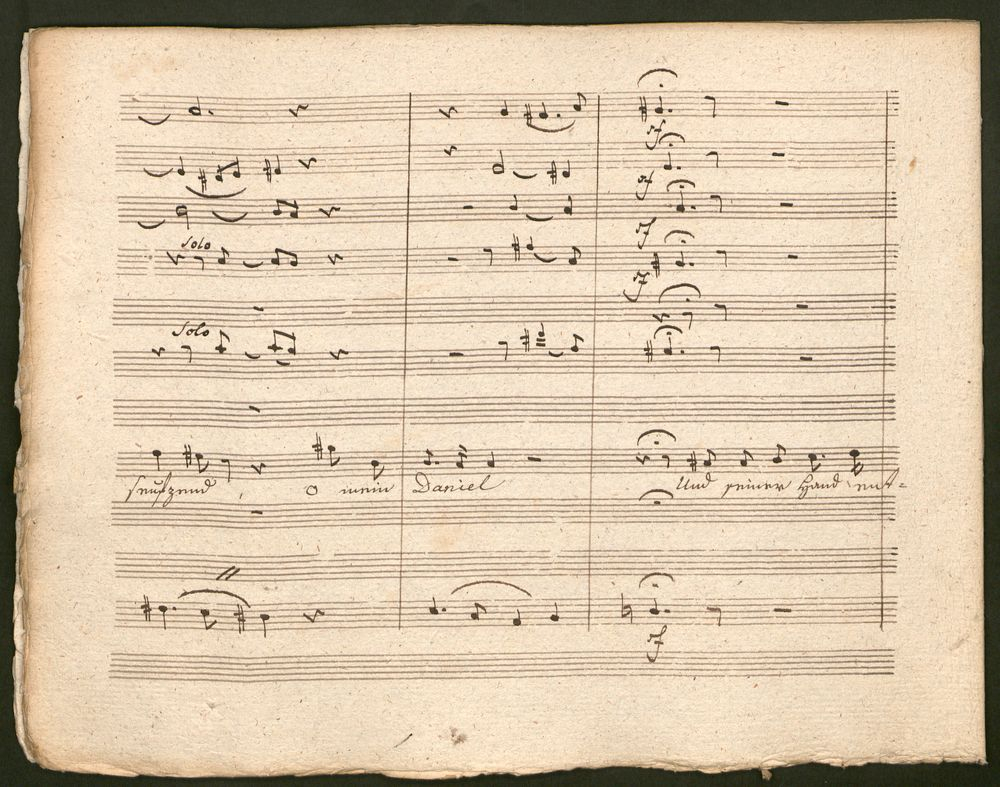 sf
sf
Solo
sf
sf
Solo
seufzend, o mein Daniel Und seiner Hand ent=
sf